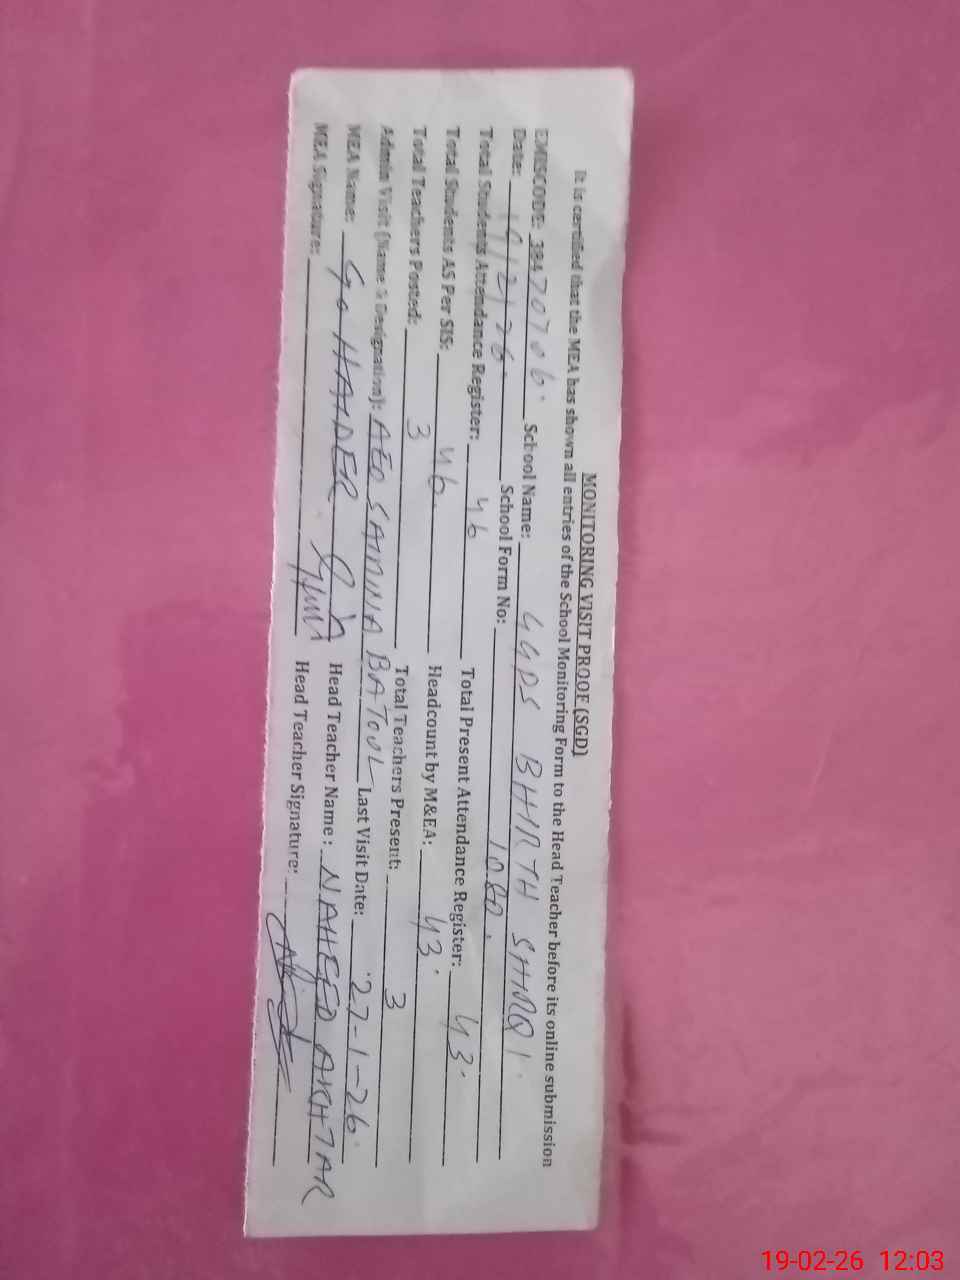 MONITORING VISIT PROOF (SGD)
It is certified that the MEA has shown all entries of the School Monitoring Form to the Head Teacher before its online submission
EMISCODE: 38470706. School Name: GGPS BHIRTH SHARQI.
Date: 19/2/26. School Form No: 1080.
Total Students Attendance Register: 46 Total Present Attendance Register: 43.
Total Students AS Per SIS: 46. Headcount by M&EA: 43.
Total Teachers Posted: 3 Total Teachers Present: 3
Admin Visit (Name & Designation): AEO SAIMA BATOOL Last Visit Date: 27-1-26.
MEA Name: HAIDER Head Teacher Name: NAHEED AKHTAR
MEA Signature: Head Teacher Signature:
19-02-26 12:03